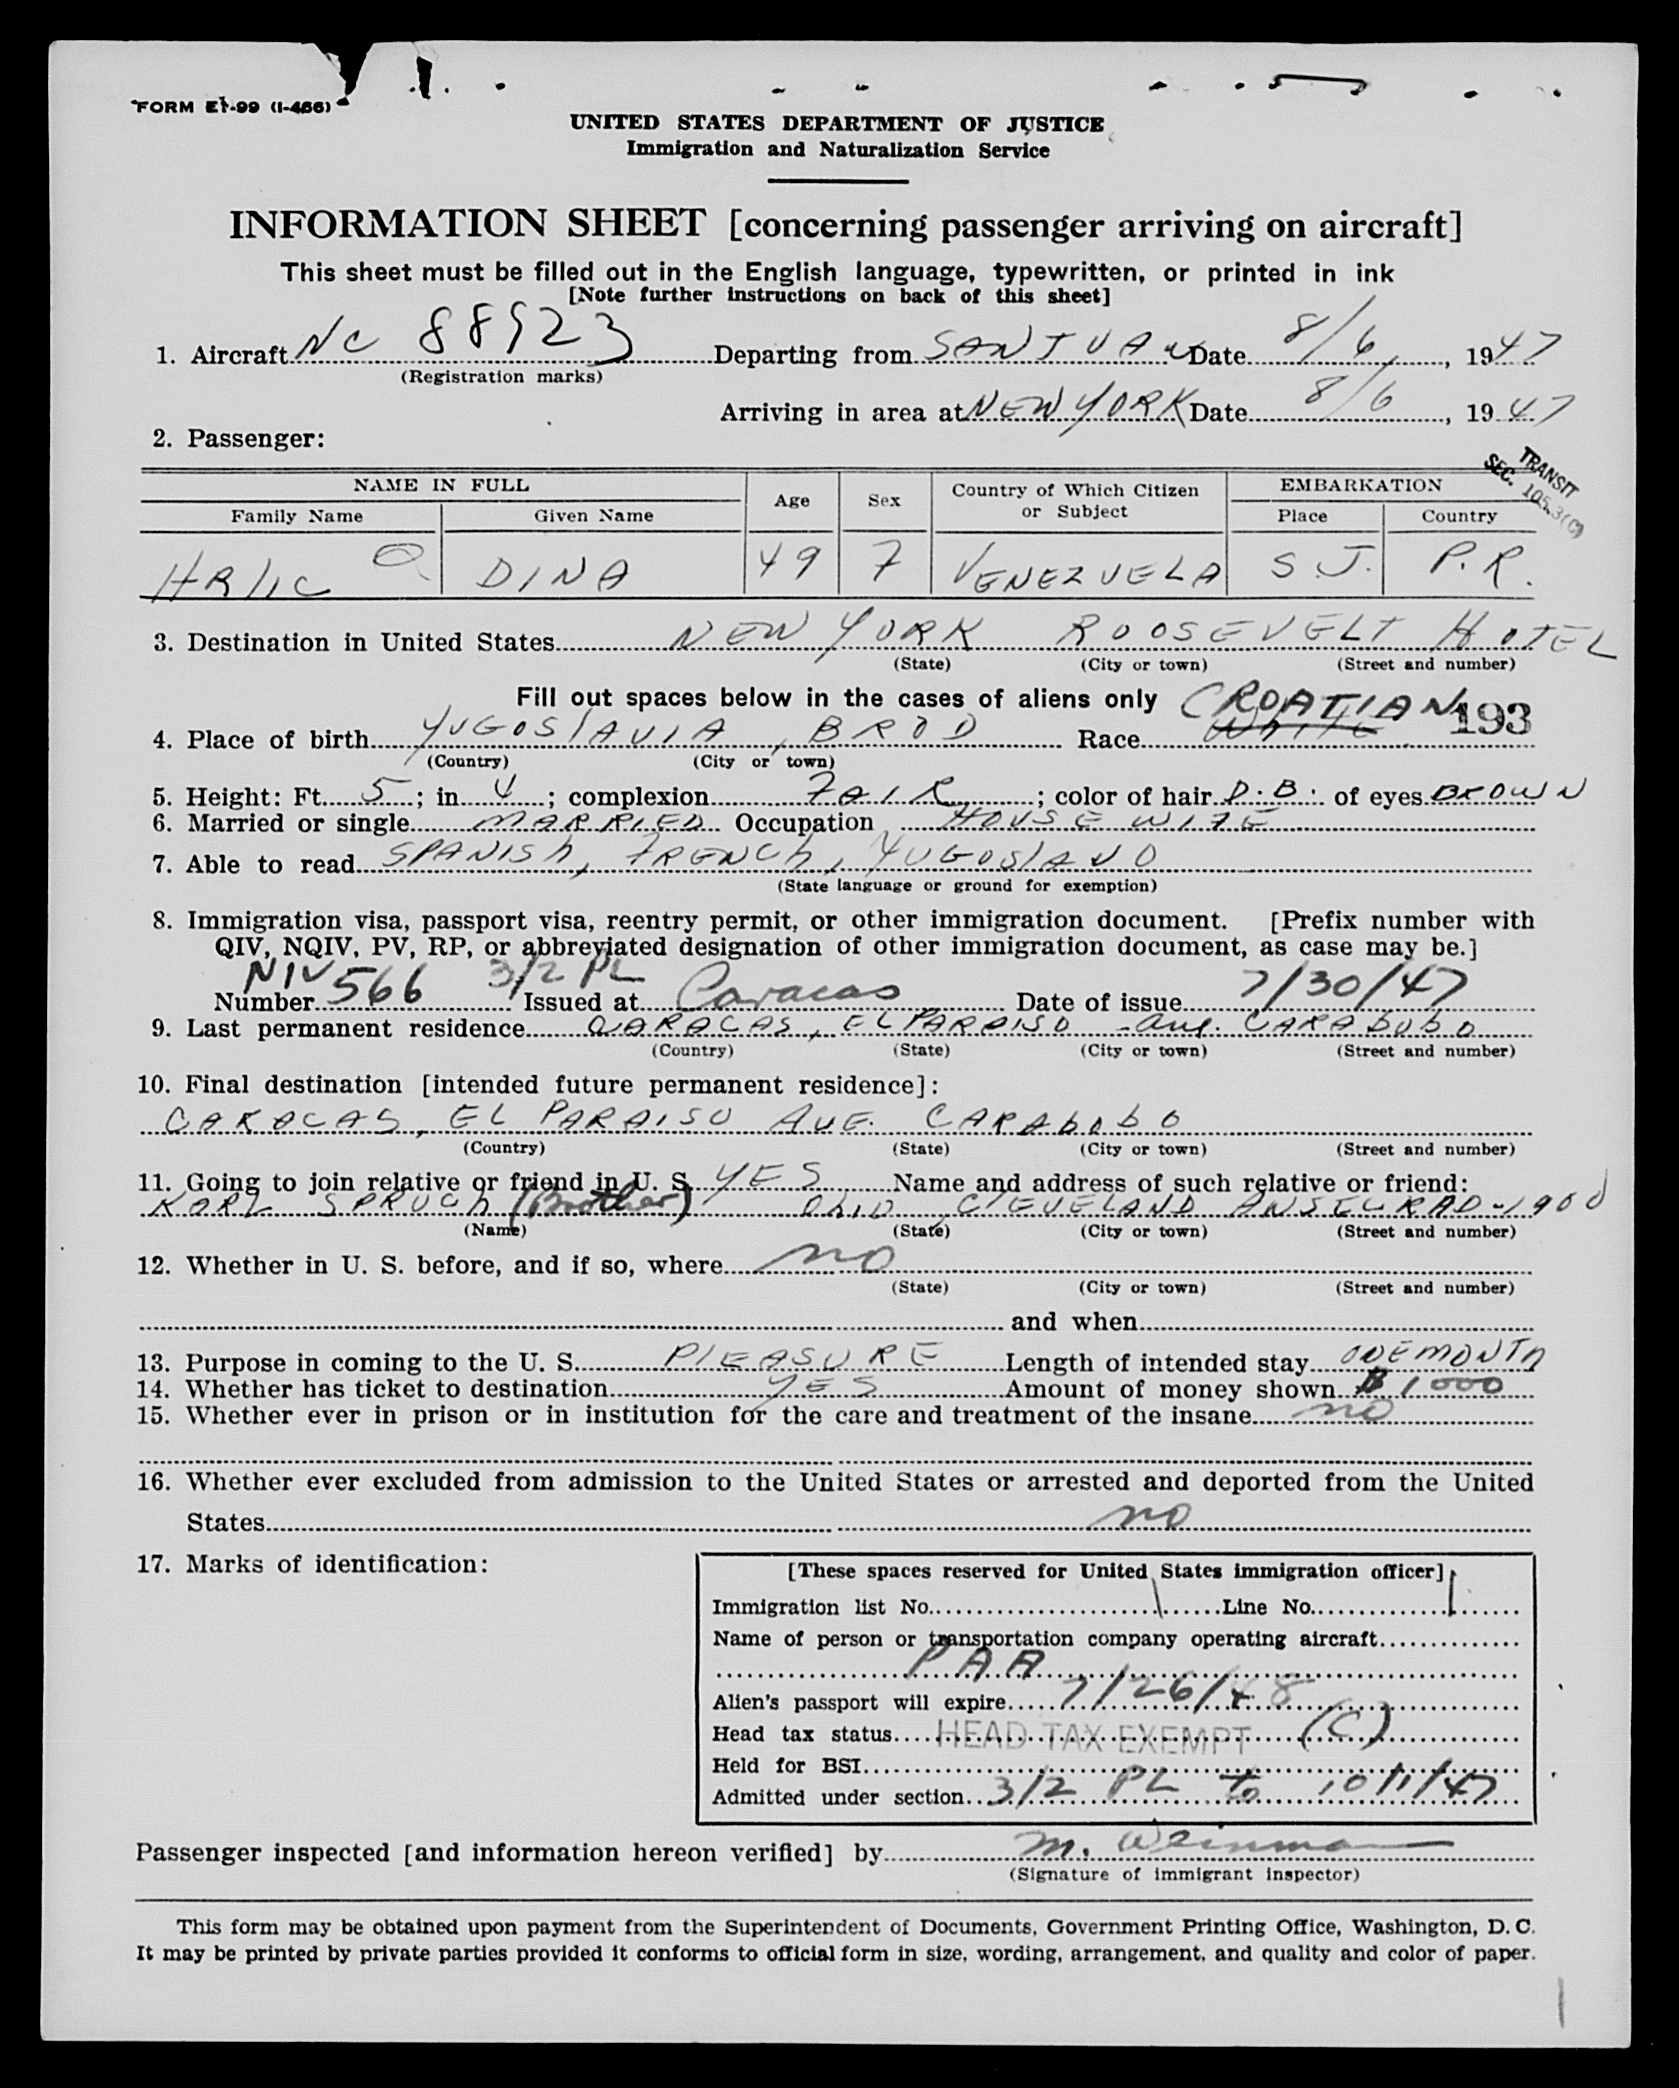 FORM (I-466)
UNITED STATES DEPARTMENT OF JUSTICE
Immigration and Naturalization Service
INFORMATION SHEET [concerning passenger arriving on aircraft]
This sheet must be filled out in the English language, typewritten, or printed in ink
[Note further instructions on back of this sheet]
1. Aircraft NC 88923 Departing from SAN JUAN Date 8/6, 1947
(Registration marks)
Arriving in area at NEW YORK Date 8/6, 1947
2. Passenger:
TRANSIT
SEC. 105.3(C)
NAME IN FULL Age Sex Country of Which Citizen or Subject EMBARKATION
Family Name Given Name Place Country
DINA 49 F VENEZUELA S.J. P.R.
3. Destination in United States NEW YORK ROOSEVELT HOTEL
(State) (City or town) (Street and number)
Fill out spaces below in the cases of aliens only CROATIAN 193
4. Place of birth YUGOSlAVIA, BROD Race White
(Country) (City or town)
5. Height: Ft. 5; in. 4; complexion FAIR; color of hair D.B. of eyes BROWN
6. Married or single MARRIED Occupation HOUSE WIFE
7. Able to read SPANISh, FRENCh, YUGOSlAVO
(State language or ground for exemption)
8. Immigration visa, passport visa, reentry permit, or other immigration document. [Prefix number with
QIV, NQIV, PV, RP, or abbreviated designation of other immigration document, as case may be.]
NIV 3/2 PL
Number 566 Issued at Caracas Date of issue 7/30/47
9. Last permanent residence CARACAS, EL PARAISO - CARAbObO
(Country) (State) (City or town) (Street and number)
10. Final destination [intended future permanent residence]:
CARACAS, EL PARAISO AVE. CARAbObO
(Country) (State) (City or town) (Street and number)
11. Going to join relative or friend in U. S. YES Name and address of such relative or friend:
KORL SPRUCh (Brother) OhIO, ClEVELAND
(Name) (State) (City or town) (Street and number)
12. Whether in U. S. before, and if so, where no
(State) (City or town) (Street and number)
and when
13. Purpose in coming to the U. S. PlEASURE Length of intended stay ONE MONTh
14. Whether has ticket to destination YES Amount of money shown $ 1000
15. Whether ever in prison or in institution for the care and treatment of the insane no
16. Whether ever excluded from admission to the United States or arrested and deported from the United
States no
17. Marks of identification:
[These spaces reserved for United States immigration officer]
Immigration list No. 1 Line No. 1
Name of person or transportation company operating aircraft
PAA
Alien's passport will expire 7/26/48
Head tax status HEAD TAX EXEMPT (C)
Held for BSI
Admitted under section 3/2 PL to 10/1/47
Passenger inspected [and information hereon verified] by M.
(Signature of immigrant inspector)
This form may be obtained upon payment from the Superintendent of Documents, Government Printing Office, Washington, D. C.
It may be printed by private parties provided it conforms to official form in size, wording, arrangement, and quality and color of paper.